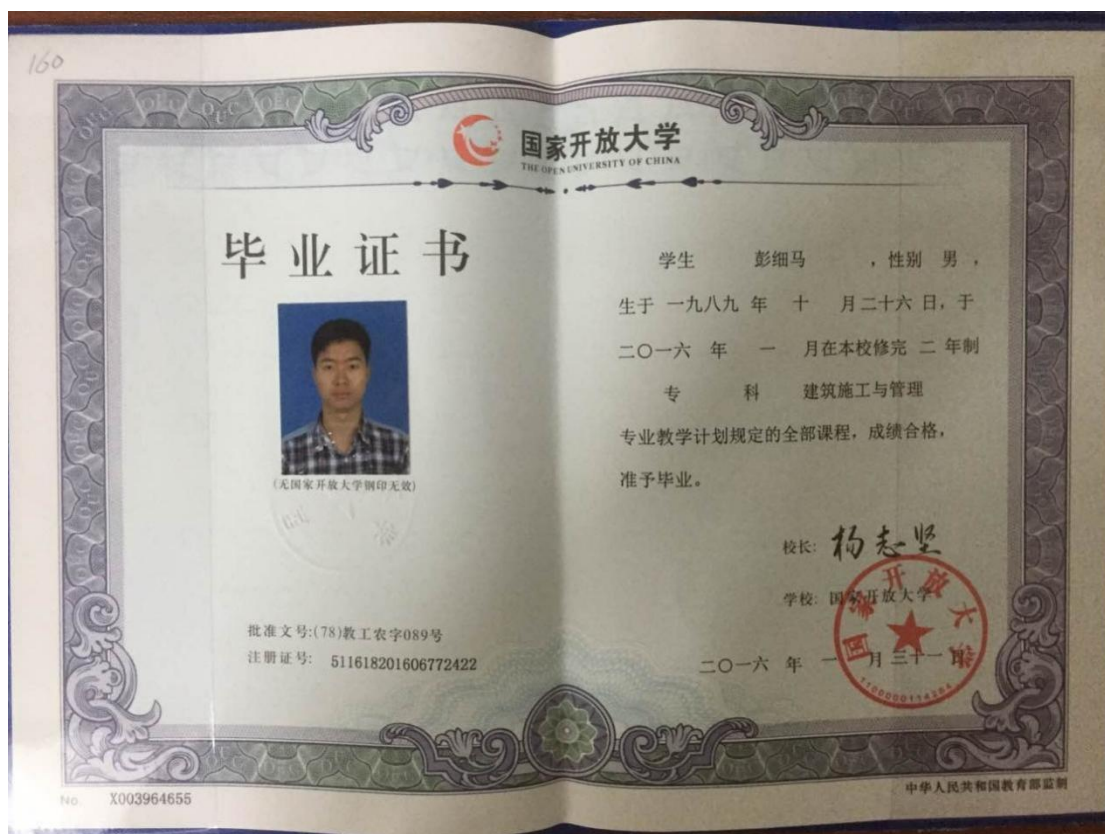 160
国家开放大学
THE OPEN UNIVERSITY OF CHINA
毕业证书
(无国家开放大学钢印无效)
批准文号:(78)教工农字089号
注册证号: 511618201606772422
学生 彭细马 ,性别 男 ,
生于 一九八九 年 十 月二十六 日,于
二〇一六 年 一 月在本校修完 二 年制
专 科 建筑施工与管理
专业教学计划规定的全部课程,成绩合格,
准予毕业。
校长: 杨志坚
学校: 国家开放大学
二〇一六 年 一 月三十一日
国家开放大学
No. X003964655
中华人民共和国教育部监制